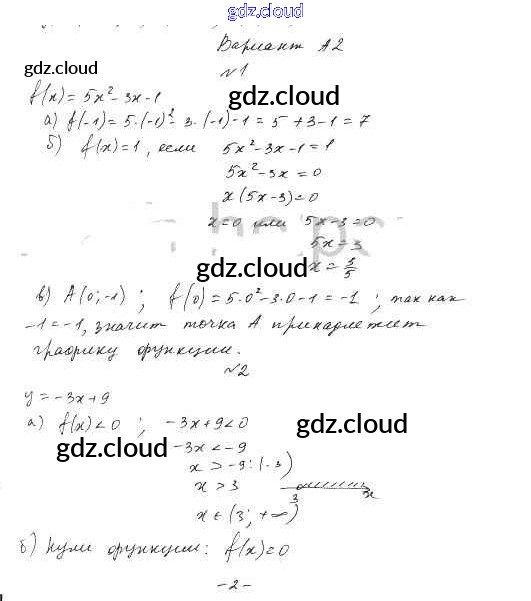 gdz.cloud
Вариант А2
gdz.cloud
№1
f(x)= 5x² - 3x - 1
gdz.cloud
а) f(-1)= 5·(-1)² - 3·(-1) - 1 = 5 + 3 - 1 = 7
б) f(x)=1, если 5x² - 3x - 1 = 1
5x² - 3x = 0
x(5x - 3) = 0
x=0 или 5x - 3 = 0
5x = 3
gdz.cloud x = 3/5
в) А(0; -1) ; f(0) = 5·0² - 3·0 - 1 = -1 ; так как
-1 = -1, значит точка А принадлежит
графику функции.
№2
y = -3x + 9
gdz.cloud
а) f(x) < 0 ; -3x + 9 < 0
gdz.cloud
gdz.cloud -3x < -9
x > -9 : (-3)
x > 3
3 x
x ∈ (3; +∞)
gdz.cloud
б) Нули функции: f(x) = 0
- 2 -